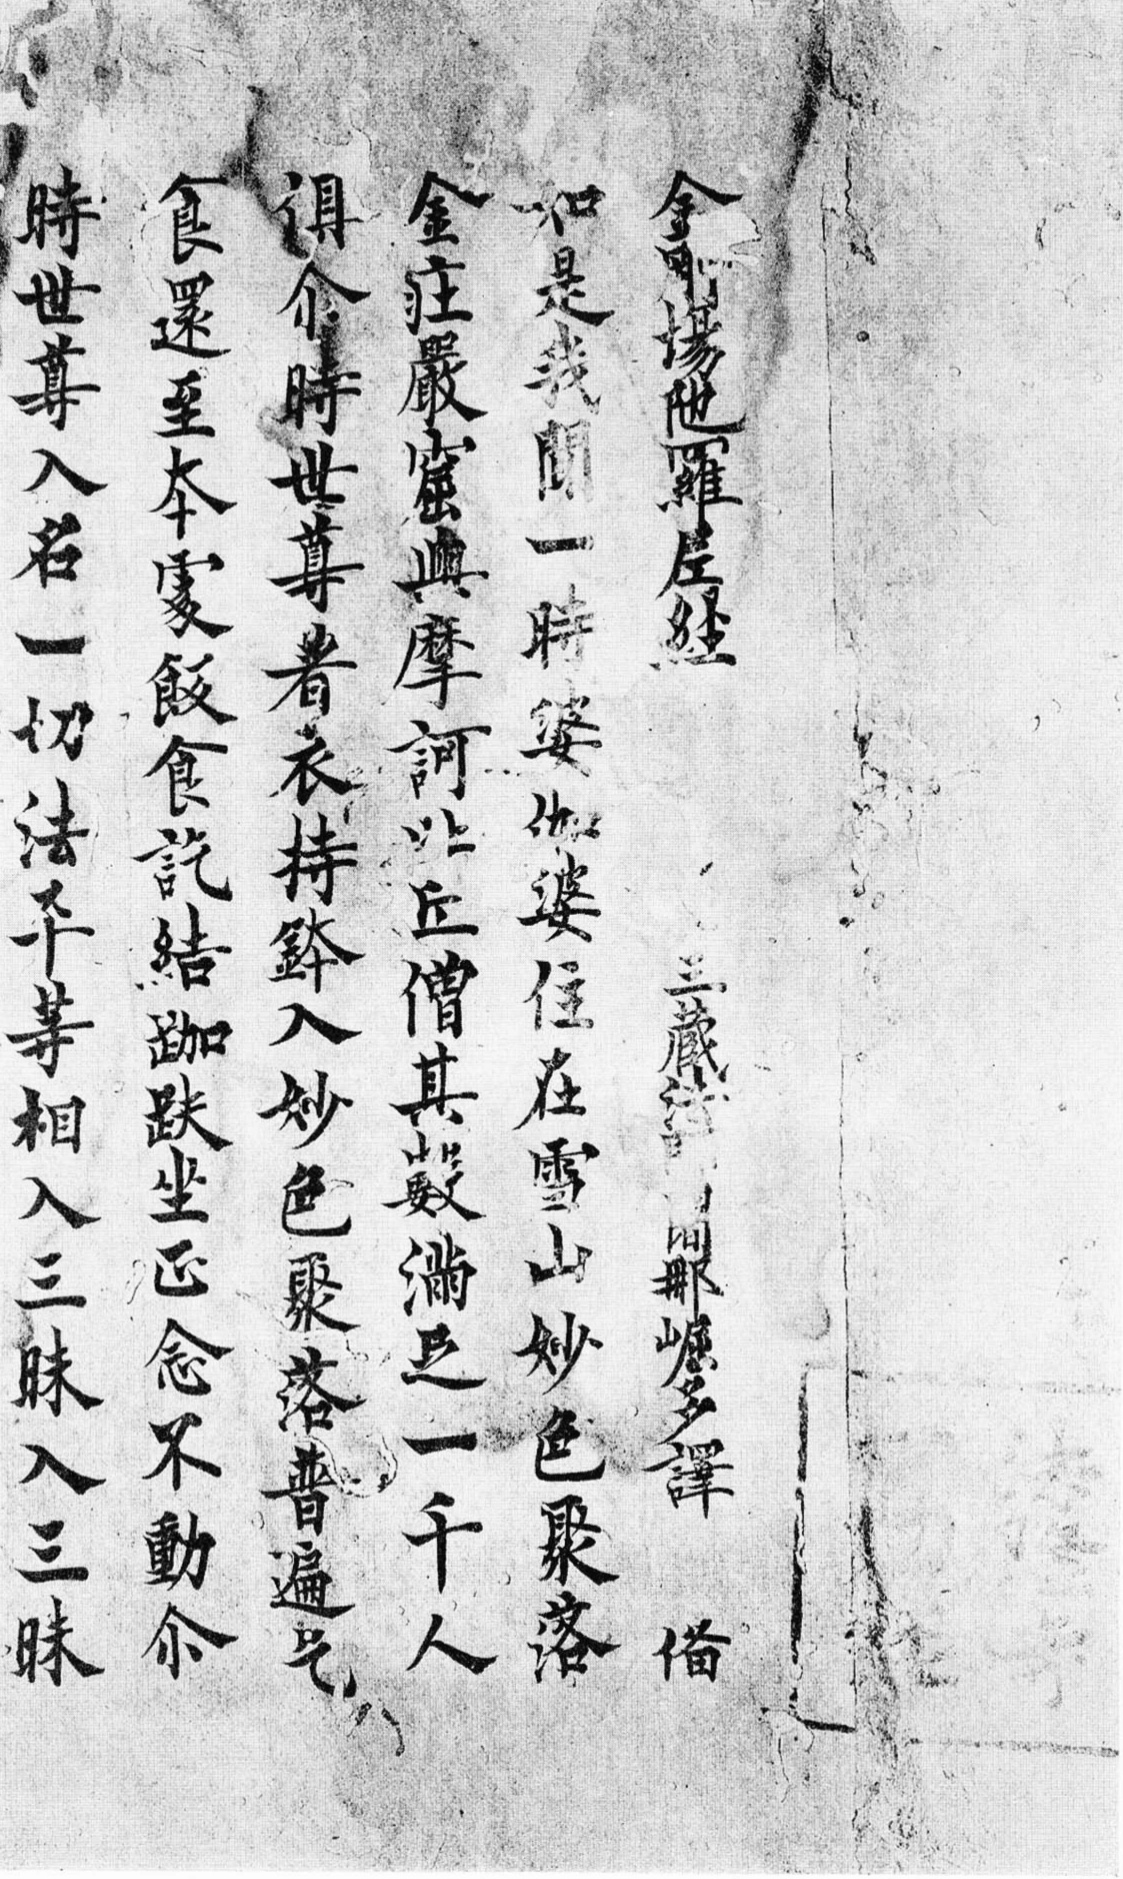 金剛場陁羅尼經 三藏法 闍那崛多譯 偹
如是我聞一時婆伽婆住在雪山妙色聚落
金庄嚴窟與摩訶比丘僧其數滿足一千人
俱尒時世尊著衣持鉢入妙色聚落普遍乞
食還至本處飯食訖結跏趺坐正念不動尒
時世尊入名一切法平等相入三昧入三昧